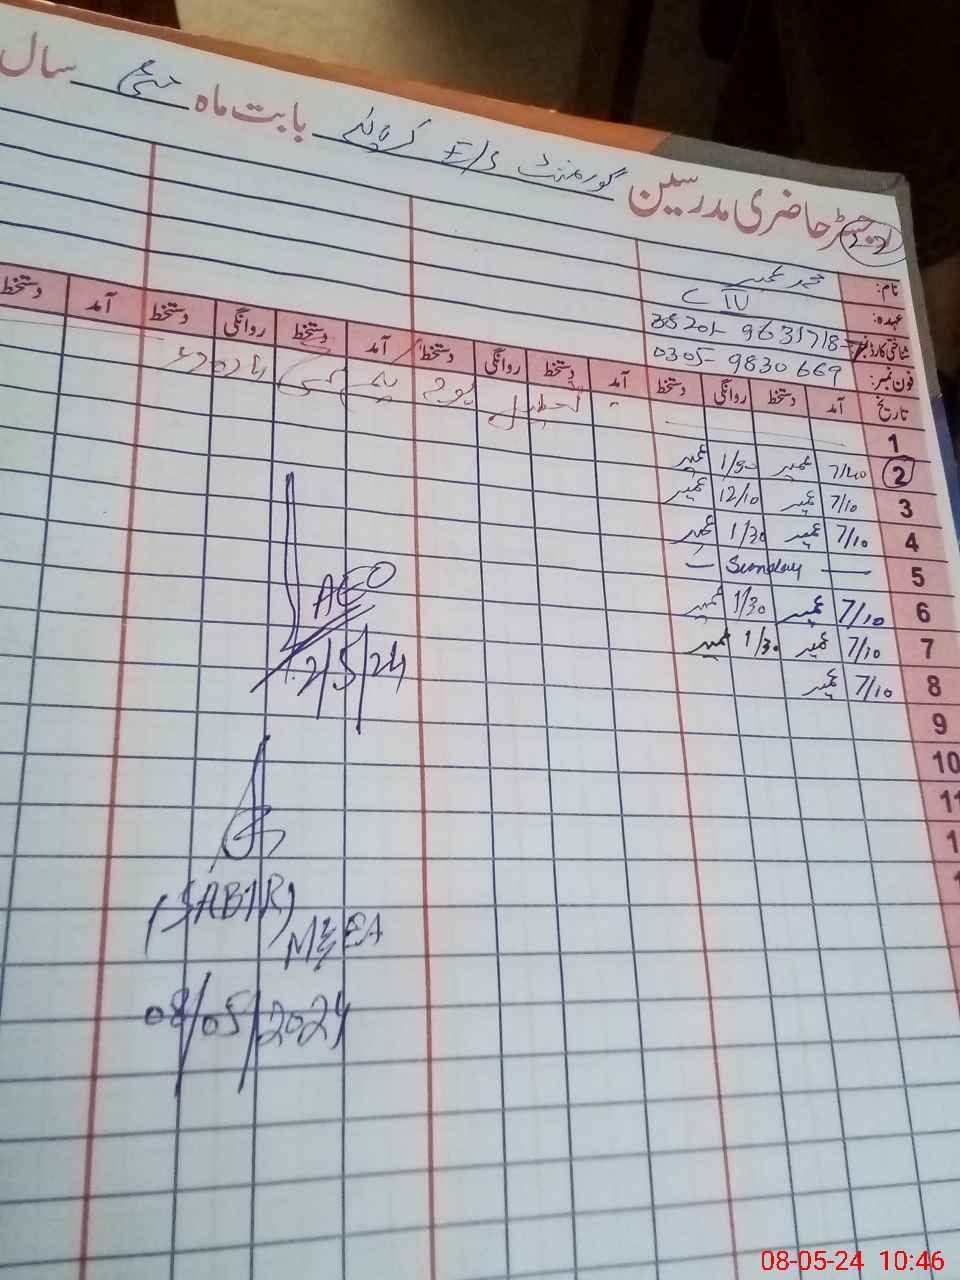 رجسٹر حاضری مدرسین گورنمنٹ E/S بابت ماہ مئی سال
22
نام: محمد عمیر
عہدہ: C IV
شناختی کارڈ نمبر: 35201-9631718-
فون نمبر: 0305-9830669
تاریخ آمد دستخط روانگی دستخط آمد دستخط روانگی دستخط آمد دستخط روانگی دستخط آمد دستخط
1 تعطیل یوم مئی
2 7/40 عمیر 1/30 عمیر
3 7/10 عمیر 12/10 عمیر
4 7/10 عمیر 1/30 عمیر
5 — Sunday —
6 7/10 عمیر 1/30 عمیر
7 7/10 عمیر 1/30 عمیر
8 7/10 عمیر
9
10
11
AEO
2/5/24
(SABIR)
MEA
08/05/2024
08-05-24 10:46